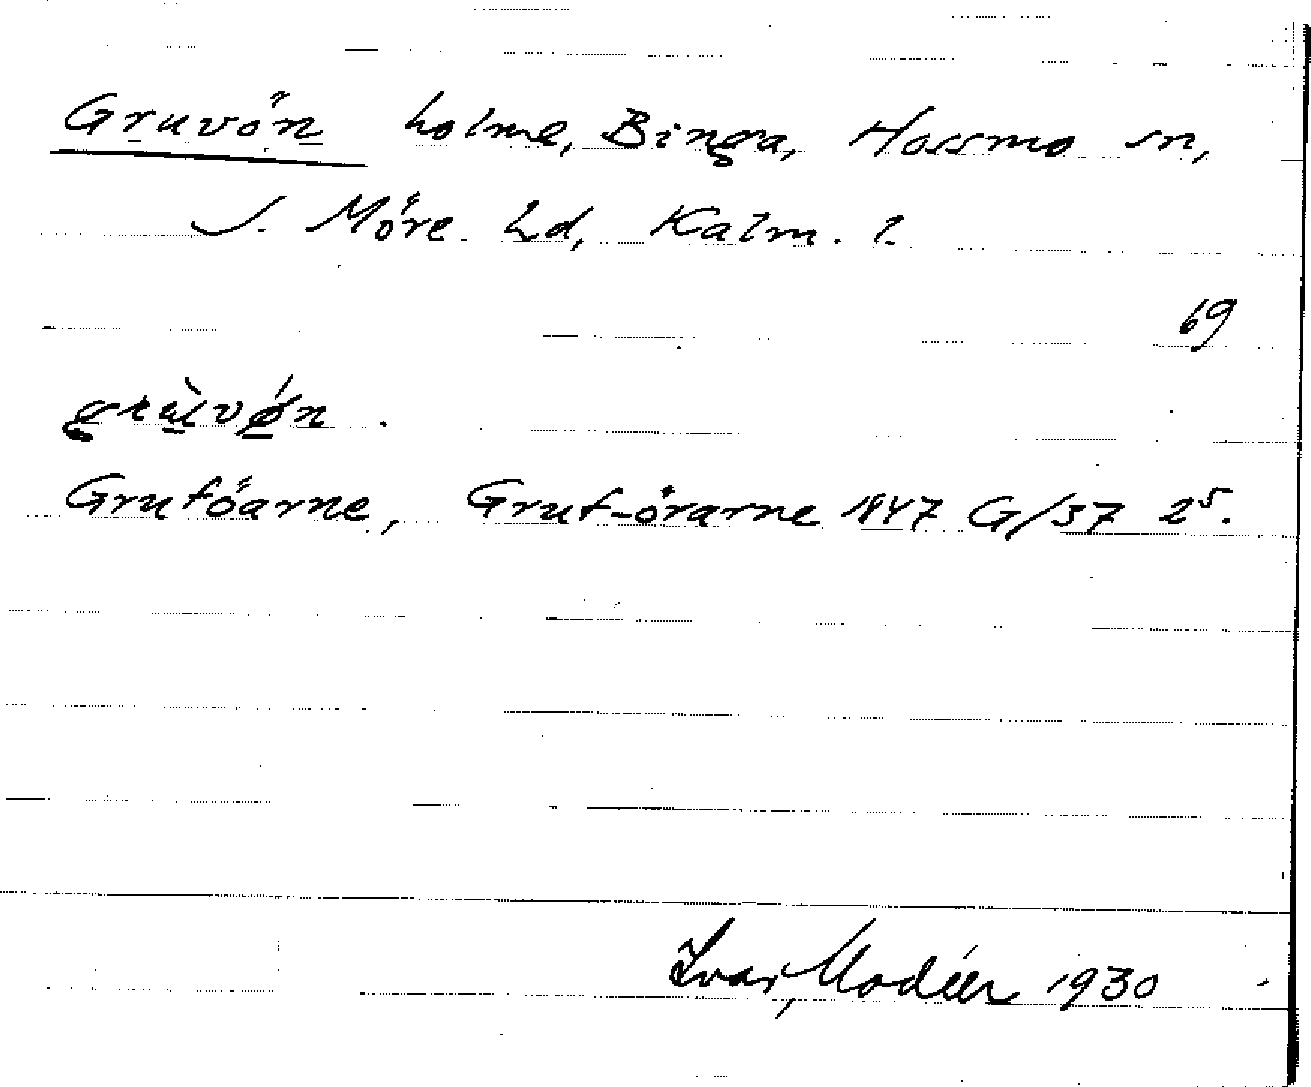 Gruvön holme, Binga, Hossmo sn,
S. Möre hd, Kalm. l.
69
grùvǿn.
Gruföarne, Gruf-örarne 1847 G/37 2⁵.
Ivar Modéer 1930